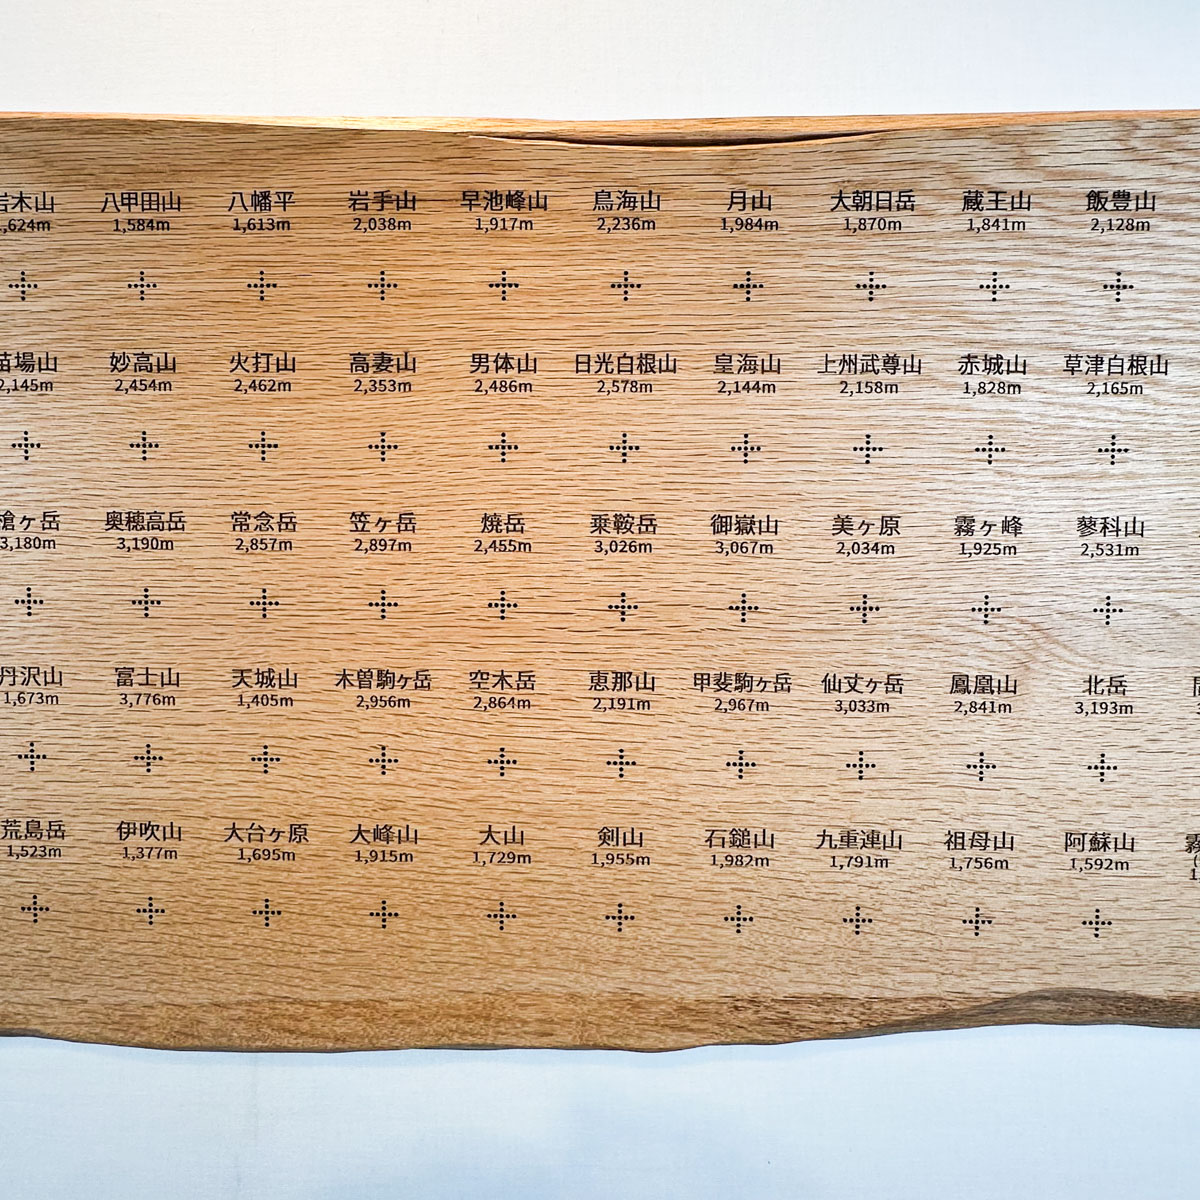 岩木山 八甲田山 八幡平 岩手山 早池峰山 鳥海山 月山 大朝日岳 蔵王山 飯豊山
1,624m 1,584m 1,613m 2,038m 1,917m 2,236m 1,984m 1,870m 1,841m 2,128m
苗場山 妙高山 火打山 高妻山 男体山 日光白根山 皇海山 上州武尊山 赤城山 草津白根山
2,145m 2,454m 2,462m 2,353m 2,486m 2,578m 2,144m 2,158m 1,828m 2,165m
槍ヶ岳 奥穂高岳 常念岳 笠ヶ岳 焼岳 乗鞍岳 御嶽山 美ヶ原 霧ヶ峰 蓼科山
3,180m 3,190m 2,857m 2,897m 2,455m 3,026m 3,067m 2,034m 1,925m 2,531m
丹沢山 富士山 天城山 木曽駒ヶ岳 空木岳 恵那山 甲斐駒ヶ岳 仙丈ヶ岳 鳳凰山 北岳
1,673m 3,776m 1,405m 2,956m 2,864m 2,191m 2,967m 3,033m 2,841m 3,193m
荒島岳 伊吹山 大台ヶ原 大峰山 大山 剣山 石鎚山 九重連山 祖母山 阿蘇山
1,523m 1,377m 1,695m 1,915m 1,729m 1,955m 1,982m 1,791m 1,756m 1,592m